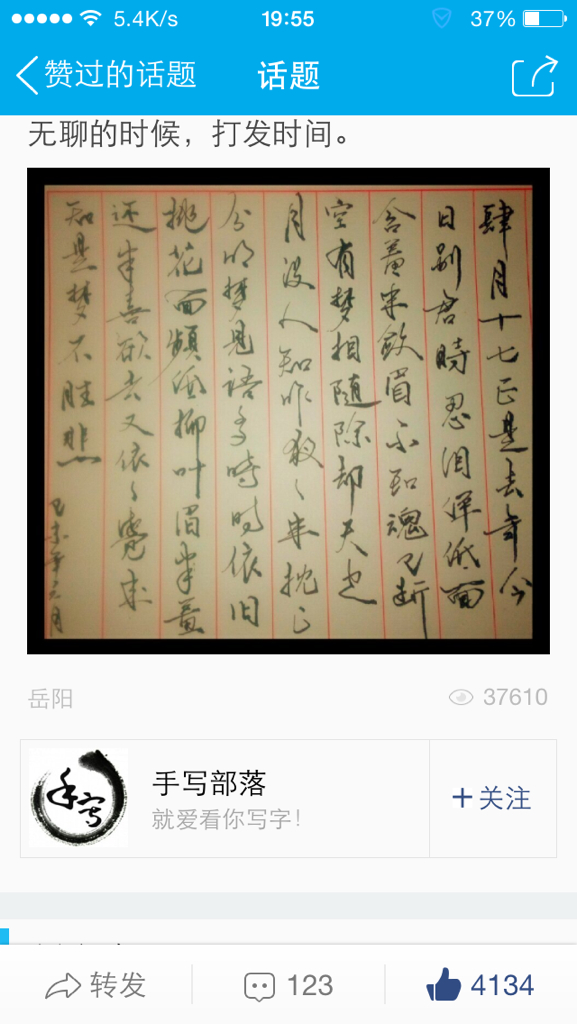 5.4K/s 19:55 37%
赞过的话题 话题
无聊的时候，打发时间。
肆月十七正是去年今
日别君時忍泪佯低面
含羞半歛眉不知魂已断
空有梦相随除却天边
月没人知昨夜〻半枕上
分明梦见语多時时依旧
桃花面频低柳叶眉半羞
还半喜欲去又依〻觉来
知是梦不胜悲
乙未年 月
岳阳 37610
手写
手写部落
就爱看你写字！
+关注
转发 123 4134